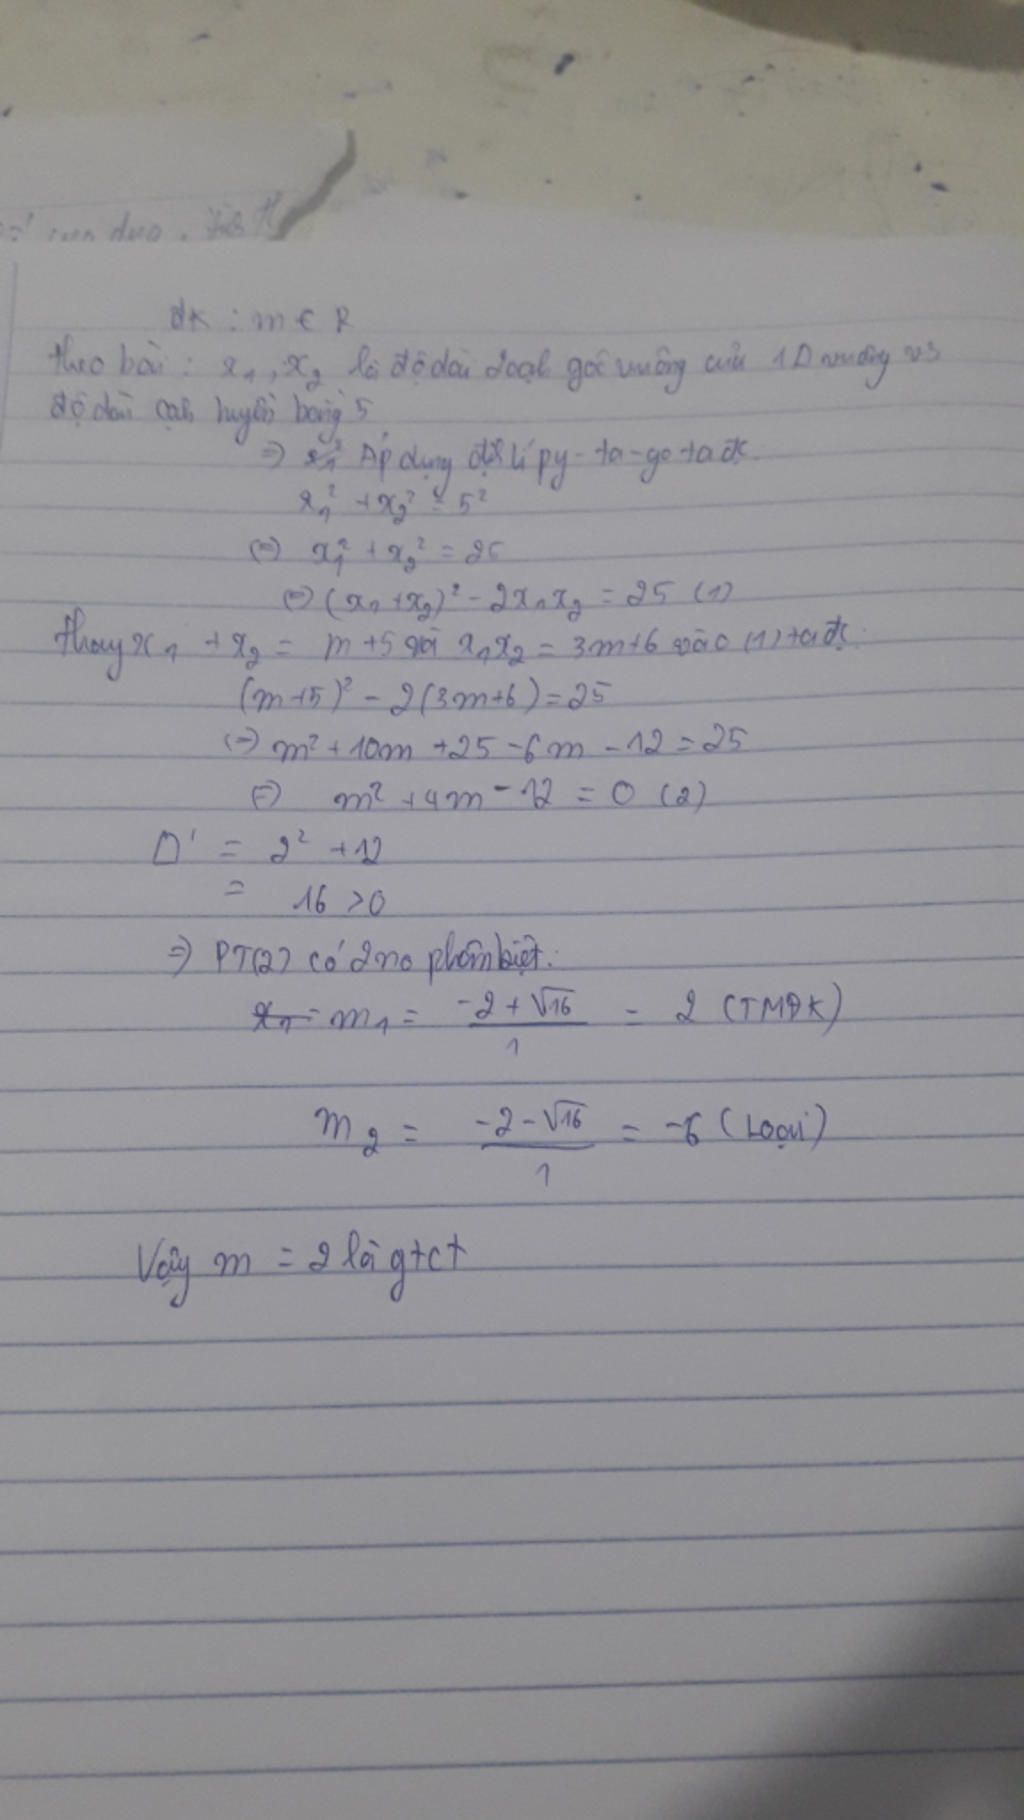 dua.
đk : m ∈ R
theo bài : x₁, x₂ là độ dài 2 cạh góc vuông của 1 Δ vuông vs
độ dài cạh huyền bằng 5
=> Áp dụng đl lí py-ta-go ta đk
x₁² + x₂² = 5²
(=) x₁² + x₂² = 25
(=) (x₁ + x₂)² - 2x₁x₂ = 25 (1)
thay x₁ + x₂ = m + 5 và x₁x₂ = 3m+6 vào (1) ta đk:
(m+5)² - 2(3m+6) = 25
(=) m² + 10m + 25 - 6m - 12 = 25
(=) m² + 4m - 12 = 0 (2)
Δ' = 2² + 12
= 16 > 0
=> PT(2) có 2 no phân biệt:
m₁ = (-2 + √16)/1 = 2 (TMĐK)
m₂ = (-2 - √16)/1 = -6 (Loại)
Vậy m = 2 là gtct